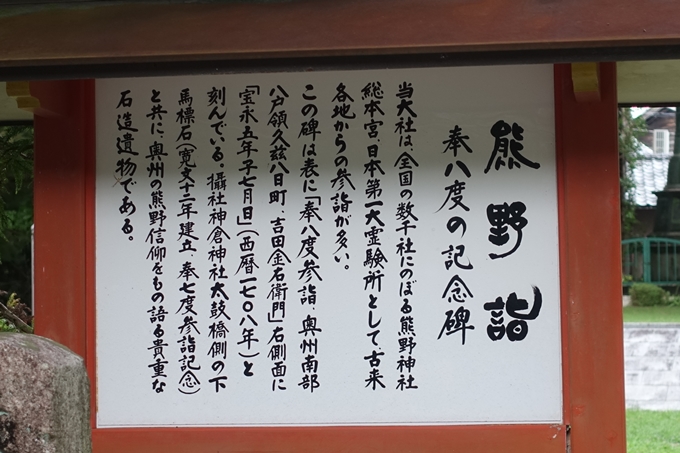 熊野詣
奉八度の記念碑
当大社は、全国の数千社にのぼる熊野神社
総本宮、日本第一大霊験所として、古来
各地からの参詣が多い。
この碑は表に「奉八度参詣、奥州南部
八戸領久慈八日町、吉田金右衛門」右側面に
「宝永五年子七月日」(西暦一七〇八年)と
刻んでいる。攝社神倉神社太鼓橋側の下
馬標石(寛文十二年建立、奉七度参詣記念)
と共に、奥州の熊野信仰をもの語る貴重な
石造遺物である。